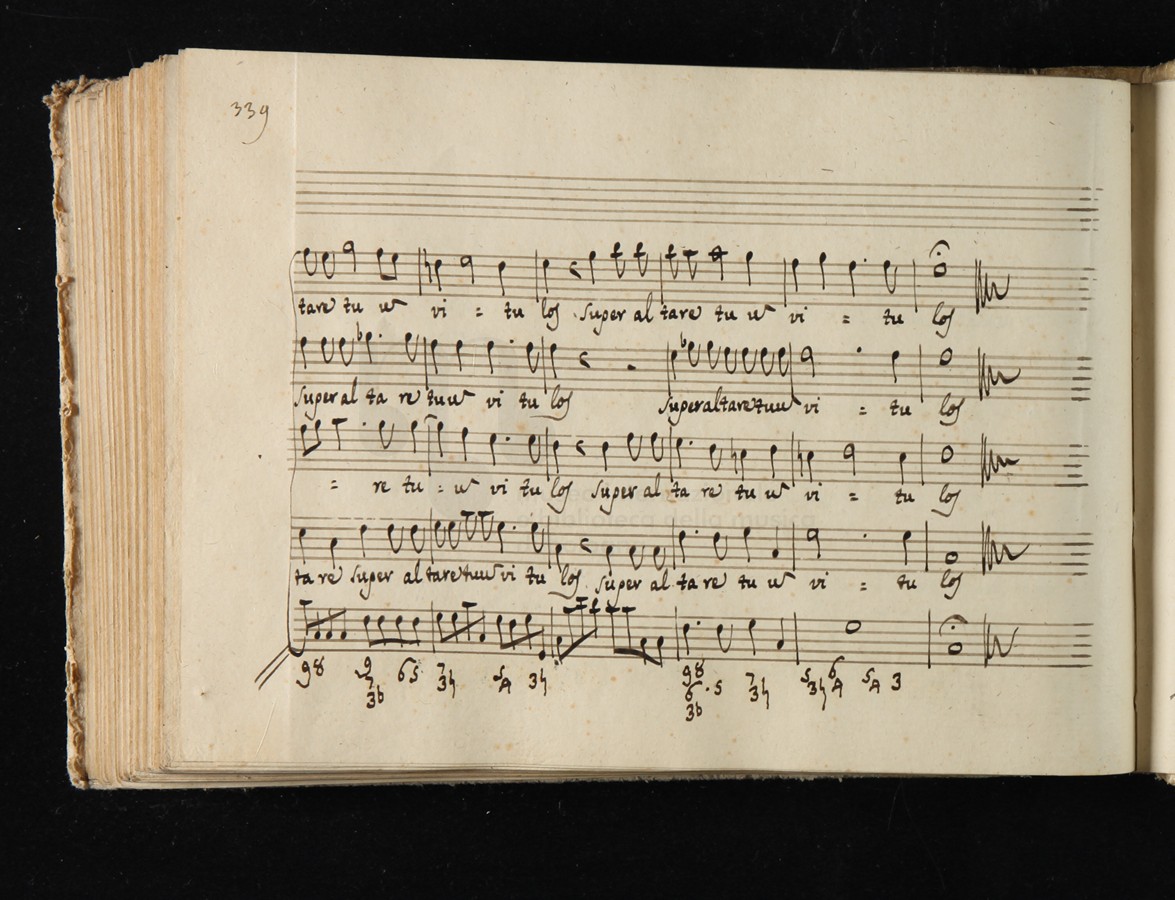 339
tare tu u vi = tu los super al tare tu u vi = tu los
super al ta re tuu vi tu los super al tare tuu vi = tu los
= re tu = u vi tu los super al ta re tu u vi = tu los
ta re super al tare tuu vi tu los super al ta re tu u vi = tu los
98 9 7 3b 65 7 3♮ 5 4 3♮ 98 6 3b .5 7 3♮ 5 3♮ 6 4 5 4 3
biblioteca della musica